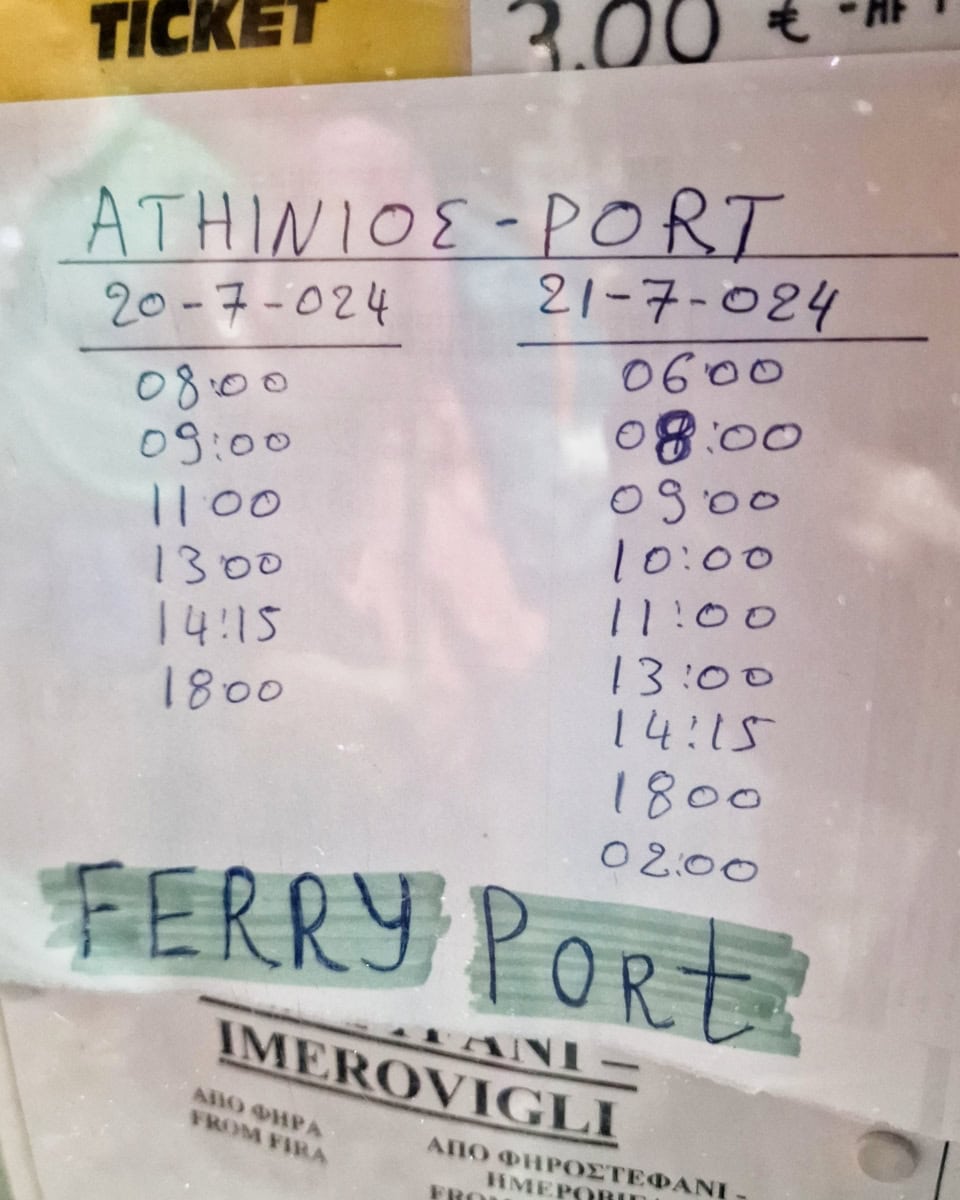 TICKET
3.00 €
ΑΤΗΙΝΙΟΣ - PORT
20-7-024
21-7-024
08:00
09:00
11:00
13:00
14:15
18:00
06:00
08:00
09:00
10:00
11:00
13:00
14:15
1800
02:00
FERRY Port
IMEROVIGLI
ΑΠΟ ΦΗΡΑ
FROM FIRA
ΑΠΟ ΦΗΡΟΣΤΕΦΑΝΙ -